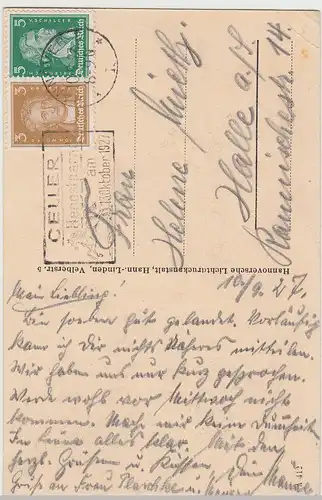 5 Deutsches Reich 5
3 Deutsches Reich 3
CELLER
am
Oktober 1927
Frau
Helene
Halle a. S.
14.
Hannoversche Lichtdruckanstalt, Hann.-Linden, Velberstr. 5
10/9. 27.
Mein Liebling!
Bin soeben gut gelandet. Vorläufig
kann ich Dir nichts Näheres mitteilen.
Wir haben uns nur kurz gesprochen.
Werde wohl vor Mittwoch nicht
kommen. Mach mir keine Dummheit.
alles klar. Mit den
herzl. Grüßen u. Küssen
Dein
Gruß an Frau